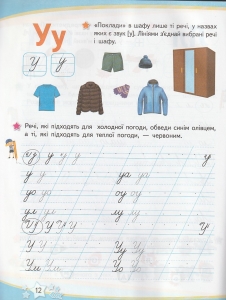 Уу
«Поклади» в шафу лише ті речі, у назвах
яких є звук [у]. Лініями з'єднай вибрані речі
і шафу.
У у
Речі, які підходять для холодної погоди, обведи синім олівцем,
а ті, які підходять для теплої погоди, — червоним.
Уу у у у у
у у уа уа
уо уо оу оу
ул ул лу лу
Уу У У У У
У У Уу Уу
Ум Ум Уо Уо
12